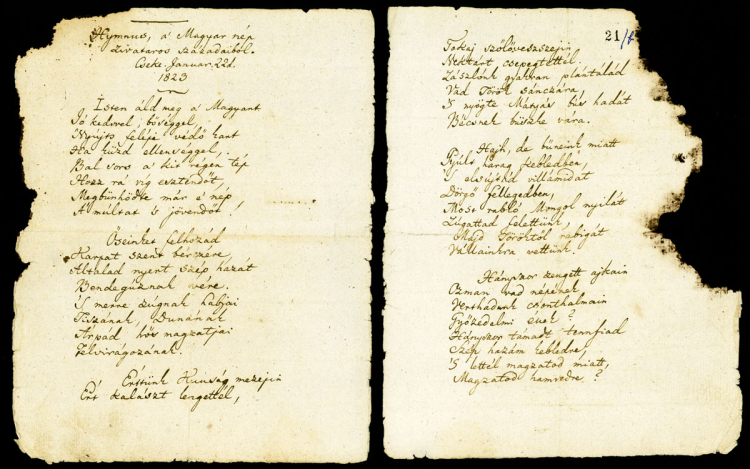 Hymnus, a' Magyar nép
zivataros századaiból.
Cseke. Januar. 22d.
1823
Isten áldd meg a' Magyart
Jó kedvvel, bőséggel,
Nyújts feléje védő kart
Ha küzd ellenséggel,
Bal sors a' kit régen tép
Hozz rá víg esztendőt,
Megbűnhődte már e' nép
A' múltat 's jövendőt!
Őseinket felhozád
Kárpát szent bérczére,
Általad nyert szép hazát
Bendegúznak vére.
'S merre zúgnak habjai
Tiszának, Dunának
Árpád hős magzatjai
Felvirágozának.
Értünk Kunság mezején
Ért kalászt lengettél,
21/1
Tokaj szőlővesszein
Nektárt csepegtettél.
Zászlónk gyakran plántálád
Vad Török sánczára,
'S nyögte Mátyás bús hadát
Bécsnek büszke vára.
Hajh, de bűneink miatt
Gyúlt harag kebledben,
'S elsújtád villámidat
Dörgő fellegedben,
Most rabló Mongol nyilát
Zúgattad felettünk,
Majd Töröktől rabigát
Vállainkra vettünk.
Hányszor zengett ajkain
Ozman vad népének
Vert hadunk csonthalmain
Győzedelmi ének?
Hányszor támadt tennfiad
Szép hazám kebledre,
'S lettél magzatod miatt,
Magzatod hamvvedre?